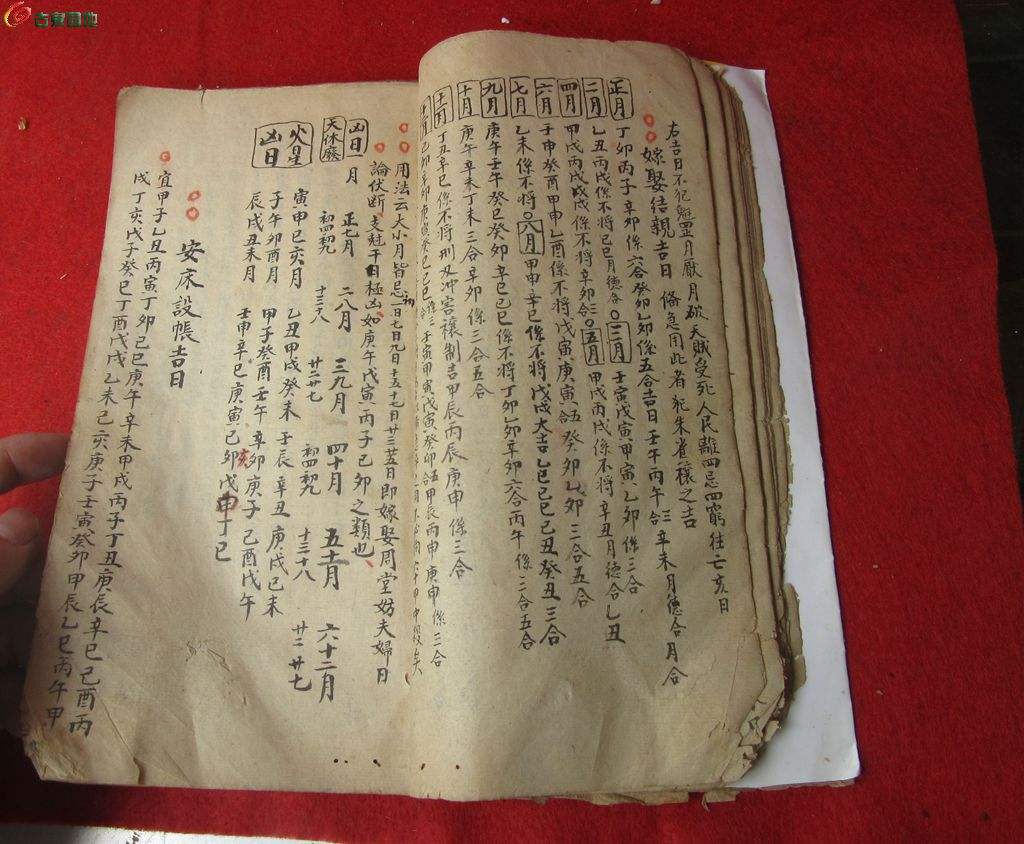 古泉园地
右吉日不犯魁罡月厭月破天賊受死人民離四忌四窮往亡亥日
嫁娶結親吉日 俻急用此者 犯朱雀禳之吉
正月 丁卯丙子辛卯係六合癸卯乙卯係五合吉日壬午丙午三合辛未月德合月合
二月 乙丑丙戌係不將己巳月德合 三月 壬寅戊寅甲寅乙卯係三合
四月 甲戌丙戌戊戌係不將辛卯合 五月 甲戌丙戌係不將辛丑月德合乙丑
六月 壬申癸酉甲申乙酉係不將戊寅庚寅五合癸卯乙卯三合五合
七月 乙未係不將 八月 甲申辛巳係不將戊戌大吉乙巳己巳丁丑癸丑三合
九月 庚午壬午癸巳癸卯辛巳己巳係不将丁卯乙卯辛卯六合丙午係三合五合
十月 庚午辛未丁未三合辛卯係三合五合
十一月 丁丑辛巳係不將刑又冲害禳制吉甲辰丙辰庚申係三合
十二月
用法云大小月皆忌初一日七日九日十五十七日廿三廿五日即嫁娶周堂妨夫婦日
論伏断支尅干日極凶如庚午戊寅丙子己卯之類也
凶日一月
天休廢 正七月 二八月 三九月 四十月 五十一月 六十二月
初四初九 十三十八 廿二廿七 初四初九 十三十八 廿二廿七
火星凶日
寅申巳亥月 乙丑甲戌癸未壬辰辛丑庚戌己未
子午卯酉月 甲子癸酉壬午辛卯庚子己酉戊午
辰戌丑未月 壬申辛巳庚寅己亥戊申丁巳
安床設帳吉日
宜甲子乙丑丙寅丁卯己巳庚午辛未甲戌丙子丁丑庚辰辛巳己酉丙
戌丁亥戊子癸巳丁酉戊戌乙未己亥庚子壬寅癸卯甲辰乙巳丙午甲